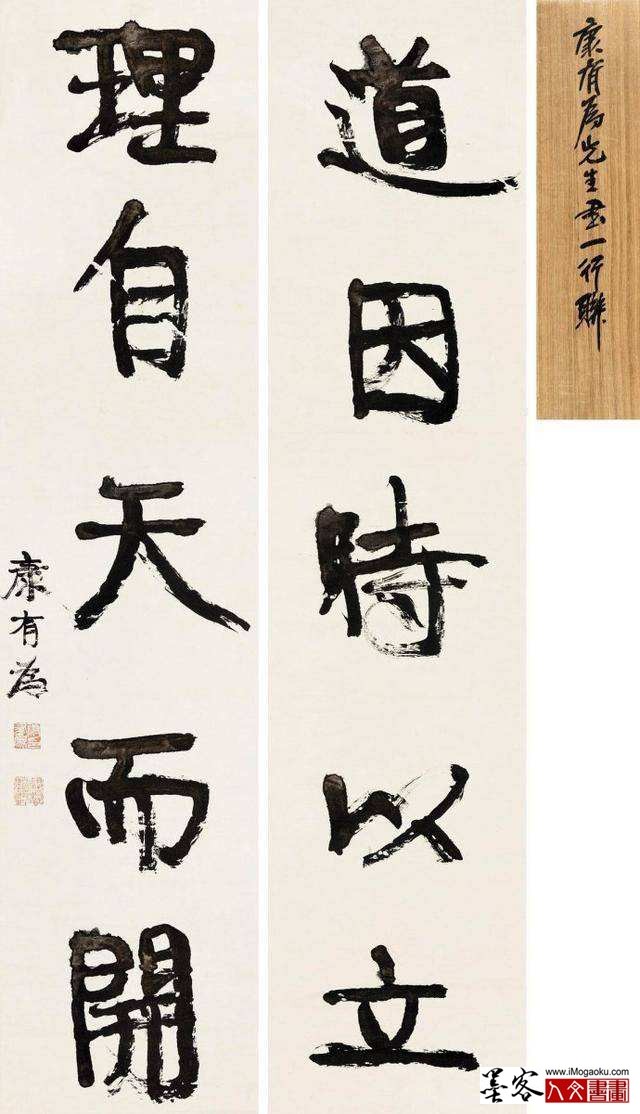 康有為先生書一行聯
道因時以立
理自天而開
康有為
墨客
www.iMogaoku.com
人文書畫